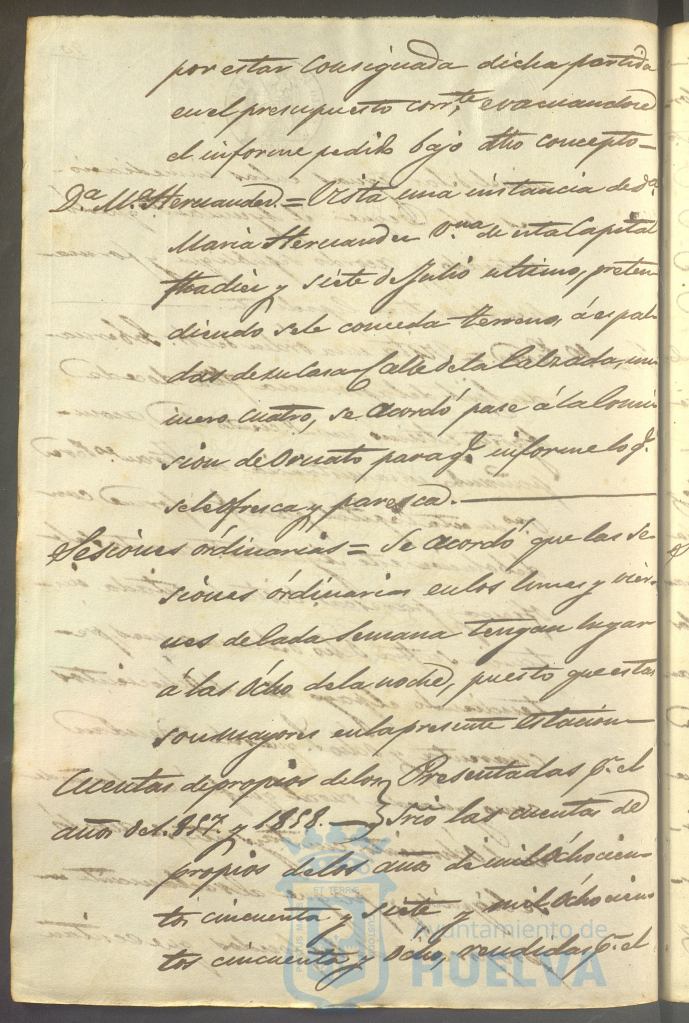 por estar Consignada dicha partida
en el presupuesto corr.te evacuandose
el informe pedido bajo dho concepto—
D.a M.a Hernandez = Vista una instancia de d.a
Maria Hernandez V.na de esta Capital
fha diez y siete de Julio ultimo, preten
diendo se le conceda terreno, á espal
das de su casa Calle de la Calzada, nu
mero cuatro, se acordó pase á la Comi
sion de Ornato para q.e informe lo q.e
se le ofresca y paresca.—
Sesiones órdinarias = Se acordó que las se
siones órdinarias en los lunes y vier
nes de cada Semana tengan lugar
á las Ócho de la noche, puesto que estas
son mayores en la presente estacion—
Cuentas de propios de los } Presentadas p.r el
años de 1.857. y 1858.— } Srio las cuentas de
propios de los años de mil Óchocien
tos cincuenta y siete y mil Óchocien
tos cincuenta y Ocho, rendidas p.r el
Ayuntamiento de
HUELVA